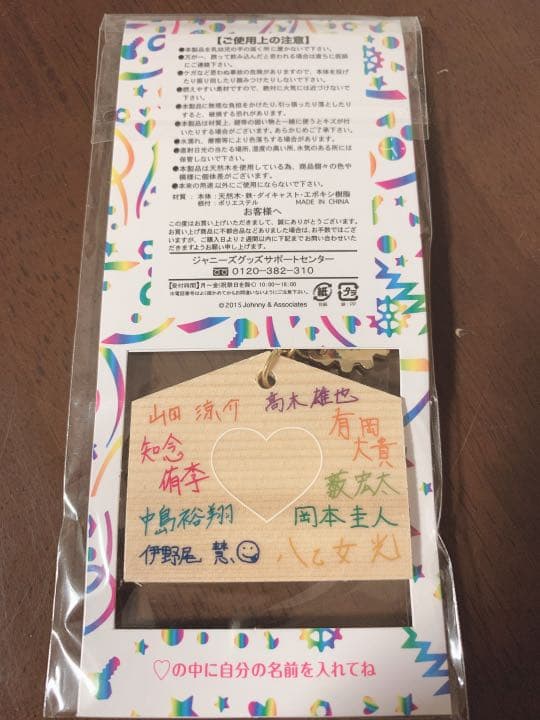 【ご使用上の注意】
●本製品を乳幼児の手の届く所に置かないで下さい。
●万が一、誤って飲み込んだと思われる場合は直ちに医師にご連絡下さい。
●ケガなど思わぬ事故の危険がありますので、本体を投げたり振り回したり踏みつけたりしないで下さい。
●燃えやすい素材ですので、絶対に火気には近づけないで下さい。
●本製品に無理な負担をかけたり、引っ張ったり落としたりすると、破損する恐れがあります。
●本製品は材質上、硬等の固い物と一緒に使うとキズが付いたりする場合がございます。あらかじめご了承下さい。
●水濡れ、摩擦等により色落ちする場合があります。
●直射日光の当たる場所、湿度の高い所、水気のある所には保管しないで下さい。
●本製品は天然木を使用している為、商品個々の色や模様に個体差がございます。
●本来の用途以外にご使用にならないで下さい。
材質：本体：天然木・鉄・ダイキャスト・エポキシ樹脂
根付：ポリエステル MADE IN CHINA
お客様へ
この度はお買い上げいただきまして、誠にありがとうございます。
お買い上げ商品に不都合品などありました場合は、お手数ではございますが、ご購入日より2週間以内に下記までお問い合わせいただきますようお願い申し上げます。
ジャニーズグッズサポートセンター
0120-382-310
【受付時間】月～金(祝祭日を除く) 10:00～16:00
※電話番号はよく確かめておかけ間違いないようにご注意下さい。
©2015 Johnny & Associates
紙
プラ
台紙
袋：PP
山田 涼介
高木 雄也
知念
侑李
有岡
大貴
薮 宏太
中島裕翔
岡本圭人
伊野尾 慧
八乙女 光
♡の中に自分の名前を入れてね